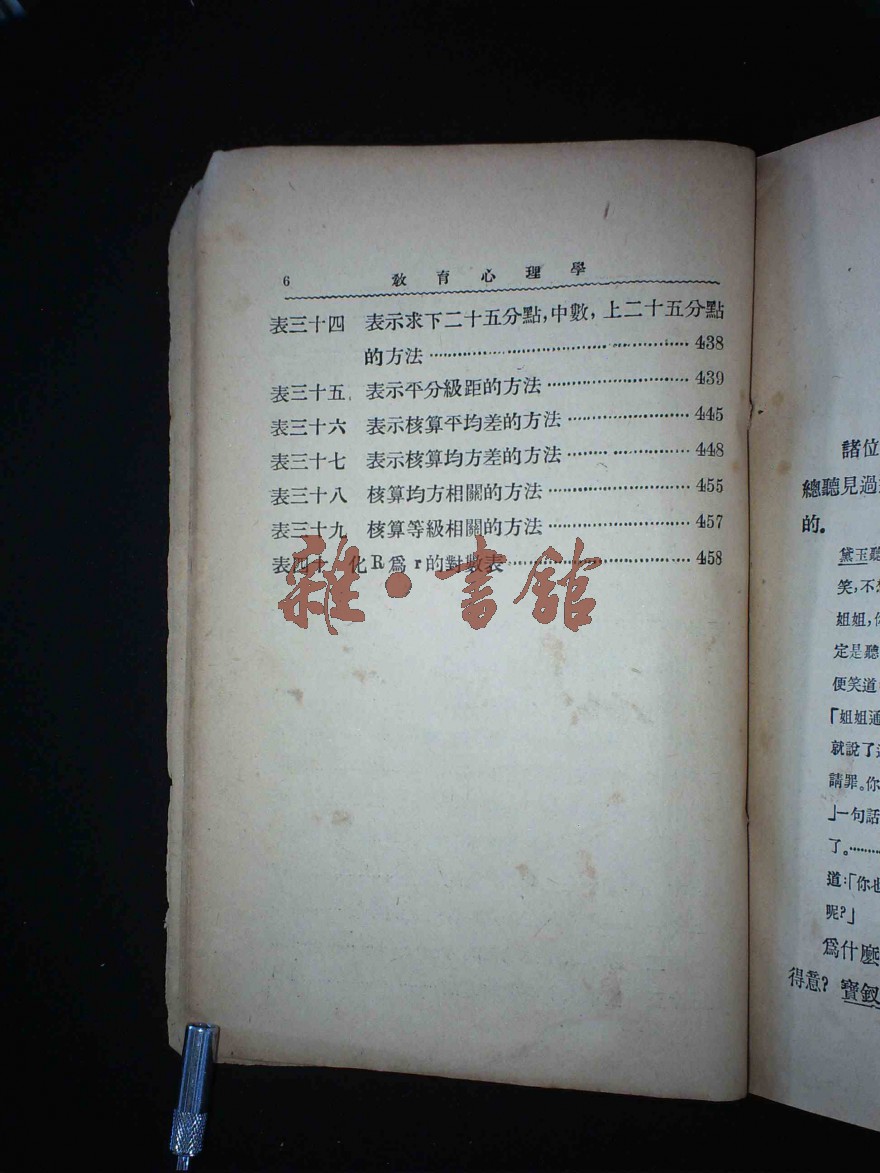 6 教育心理學
表三十四 表示求下二十五分點,中數,上二十五分點
的方法 438
表三十五 表示平分級距的方法 439
表三十六 表示核算平均差的方法 445
表三十七 表示核算均方差的方法 448
表三十八 核算均方相關的方法 455
表三十九 核算等級相關的方法 457
表四十 化R爲r的對數表 458
雜·書館
諸位
總聽見過
的.
黛玉聽
笑,不
姐姐,你
定是聽
便笑道
「姐姐通
就說了
請罪。你
」一句話
了。………
道:「你也
呢?」
爲什麼
得意?寶釵